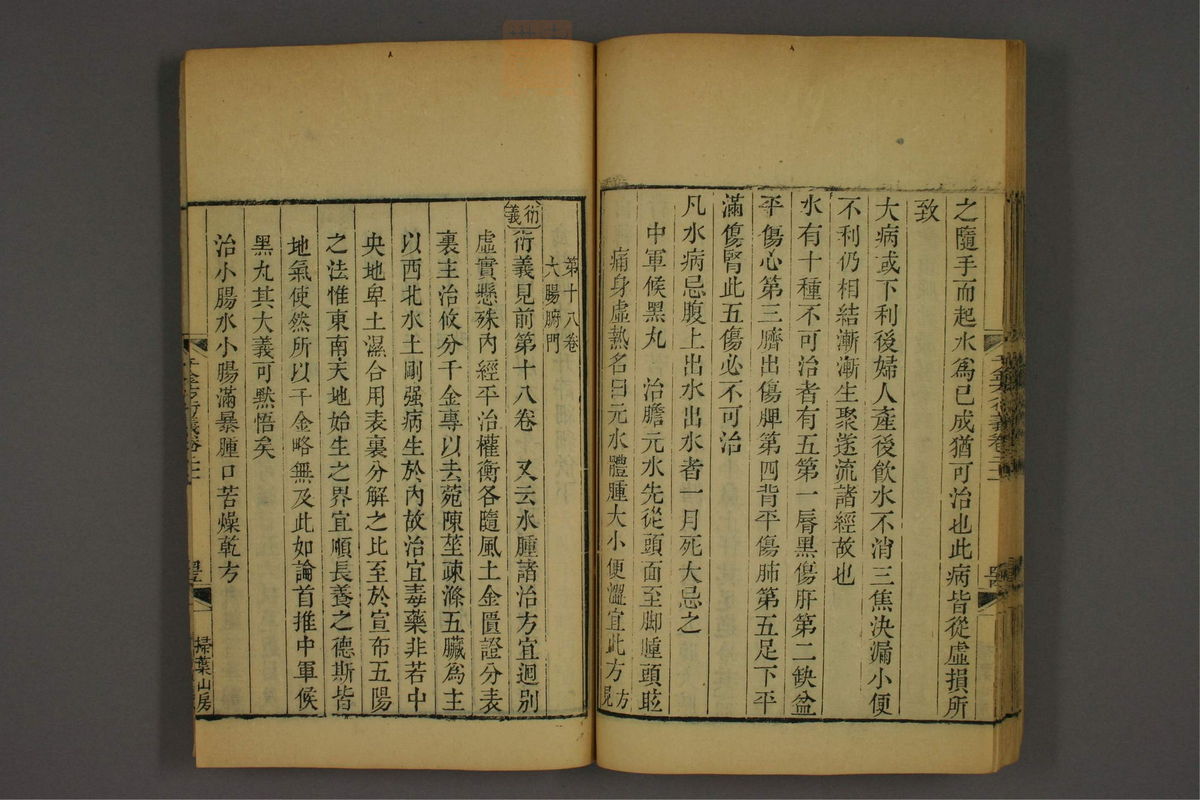 之隨手而起水爲已成猶可治也此病皆從虛損所
致
大病或下利後婦人產後飲水不消三焦決漏小便
不利仍相結漸漸生聚遂流諸經故也
水有十種不可治者有五第一脣黑傷肝第二缺盆
平傷心第三臍出傷脾第四背平傷肺第五足下平
滿傷腎此五傷必不可治
凡水病忌腹上出水出水者一月死大忌之
中軍候黑丸 治膽元水先從頭面至脚腫頭眩
痛身虛熱名曰元水體腫大小便澀宜此方方見
第十八卷
大腸腑門
衍義
衍義見前第十八卷 又云水腫諸治方宜迥別
虛實懸殊內經平治權衡各隨風土金匱證分表
裏主治攸分千金專以去菀陳莝疎滌五臟爲主
以西北水土剛强病生於內故治宜毒藥非若中
央地卑土濕合用表裏分解之比至於宣布五陽
之法惟東南天地始生之界宜順長養之德斯皆
地氣使然所以千金略無及此如論首推中軍候
黑丸其大義可默悟矣
治小腸水小腸滿暴腫口苦燥乾方
千金方衍義卷二十一
掃葉山房